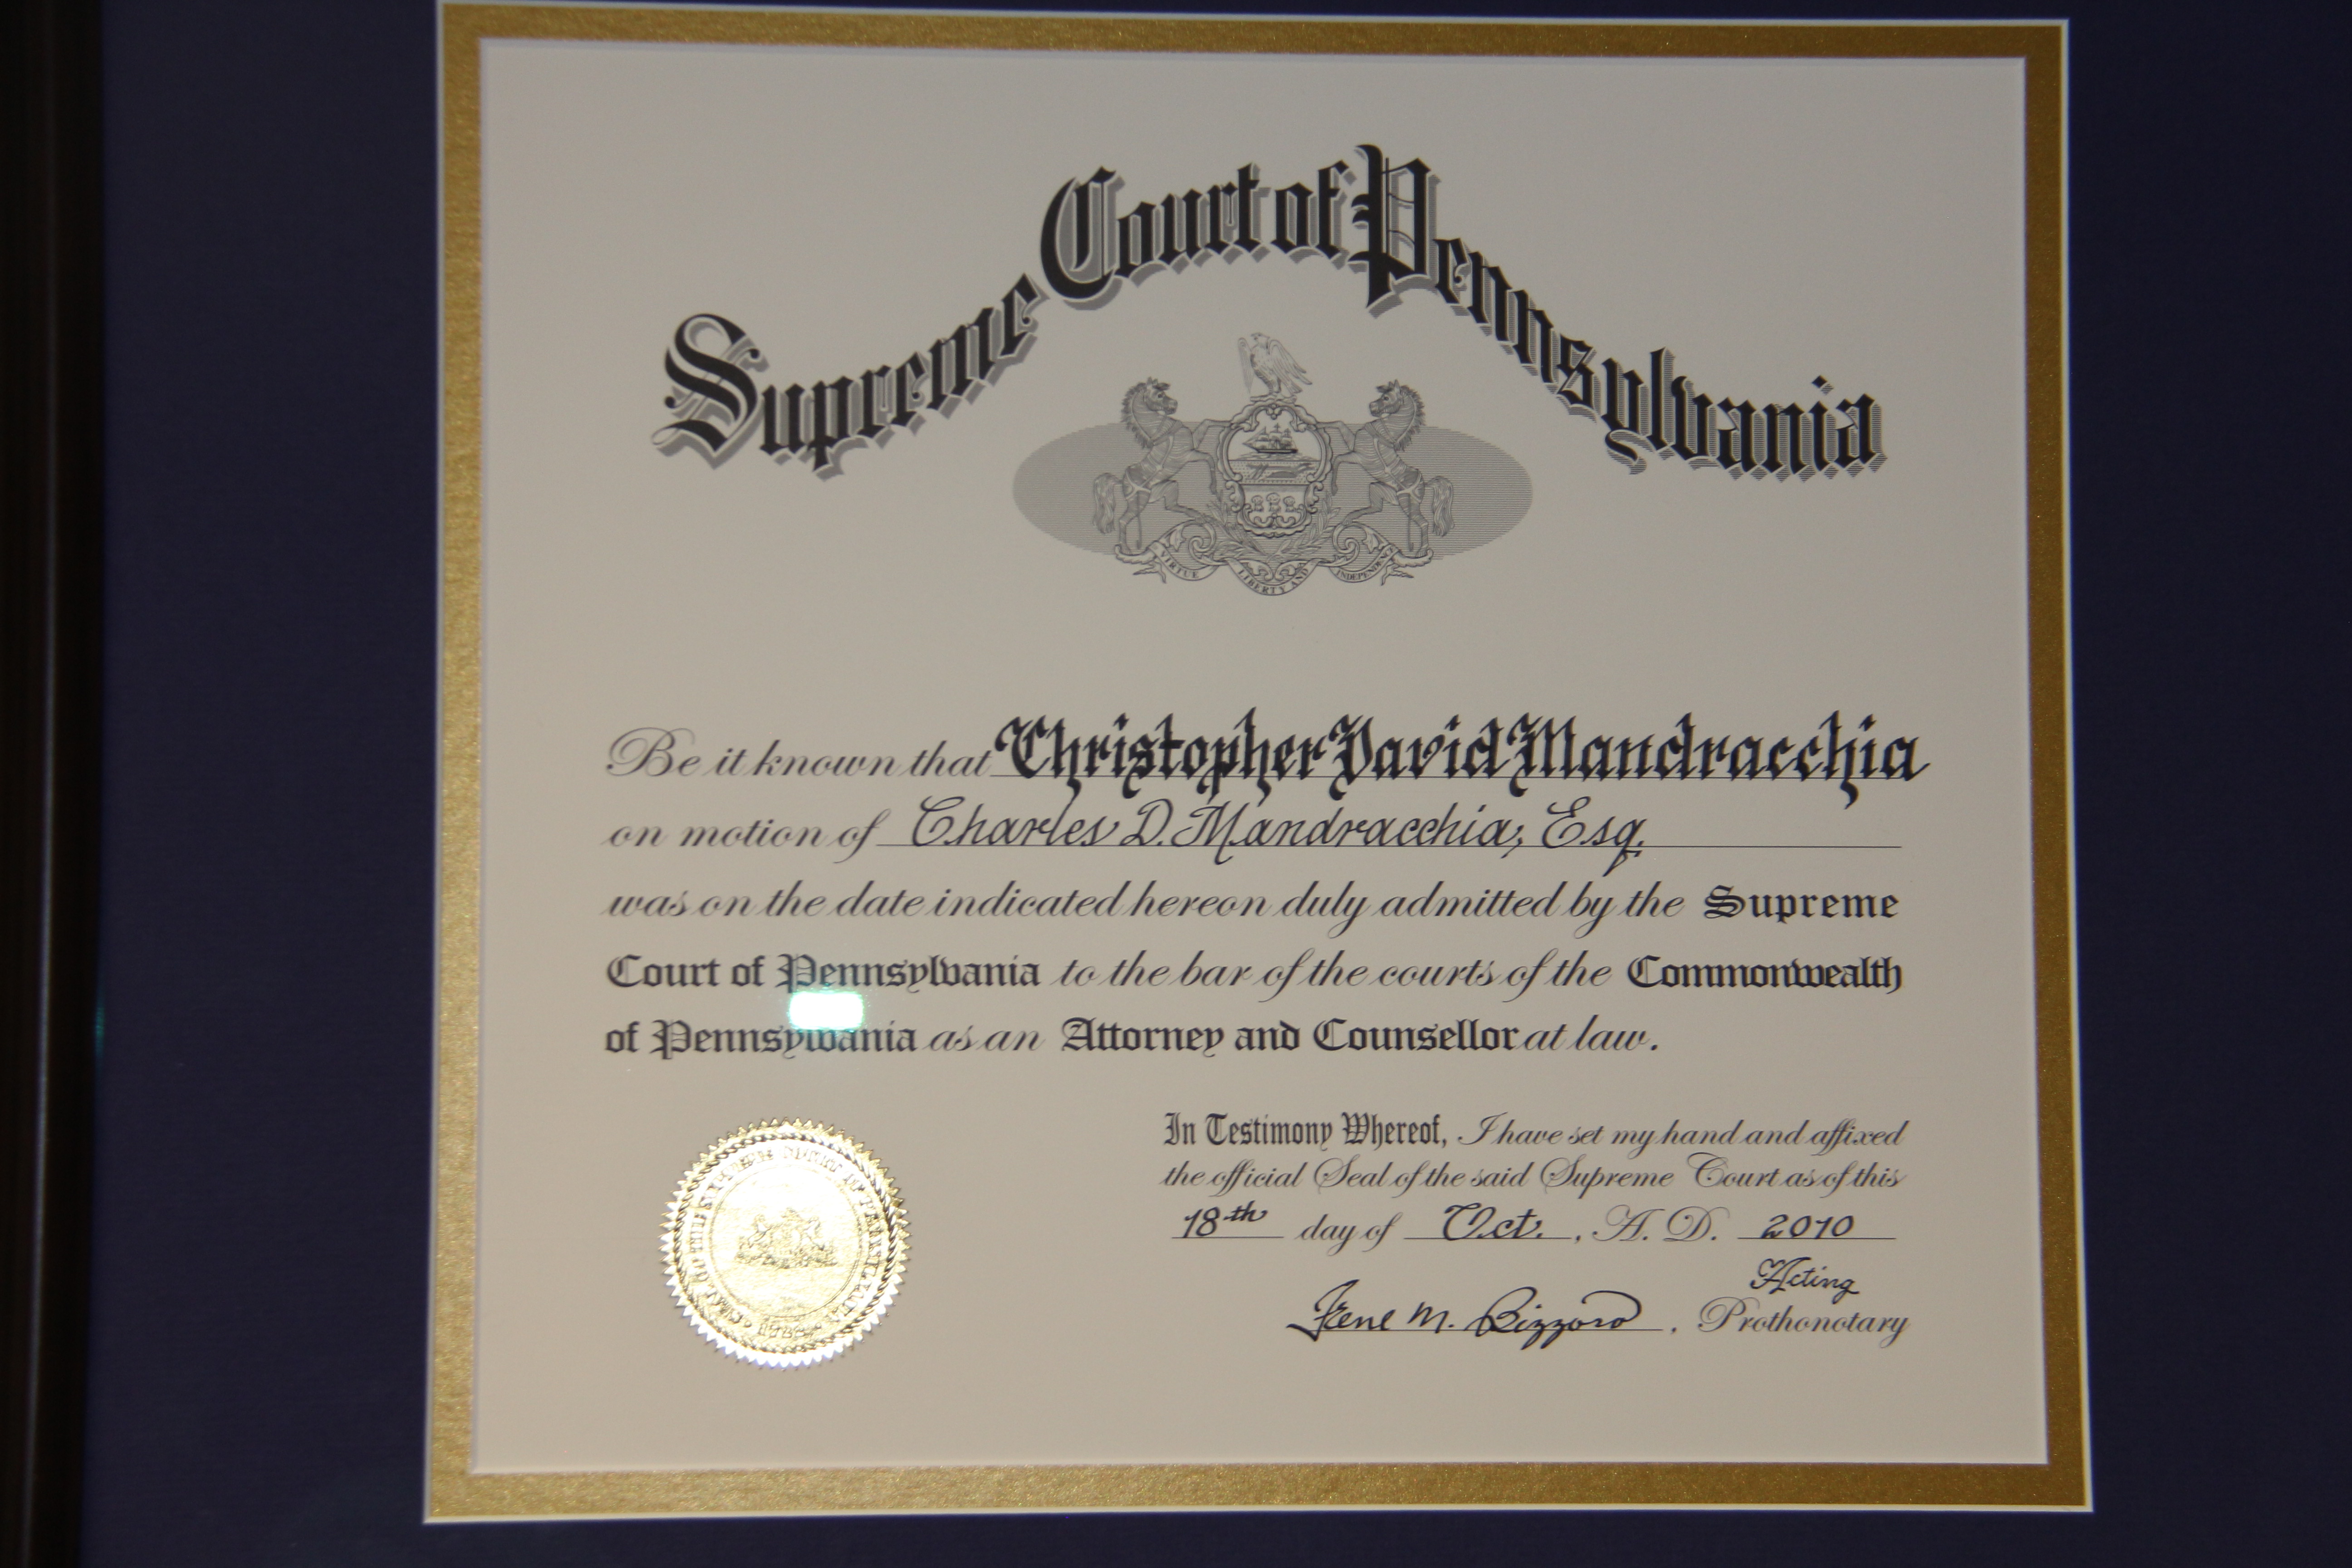 Supreme Court of Pennsylvania
VIRTUE LIBERTY AND INDEPENDENCE
Be it known that Christopher David Mandracchia
on motion of Charles D. Mandracchia, Esq.
was on the date indicated hereon duly admitted by the Supreme
Court of Pennsylvania to the bar of the courts of the Commonwealth
of Pennsylvania as an Attorney and Counsellor at law.
In Testimony Whereof, I have set my hand and affixed
the official Seal of the said Supreme Court as of this
18th day of Oct. , A. D. 2010
Acting
Irene M. Bizzoso , Prothonotary